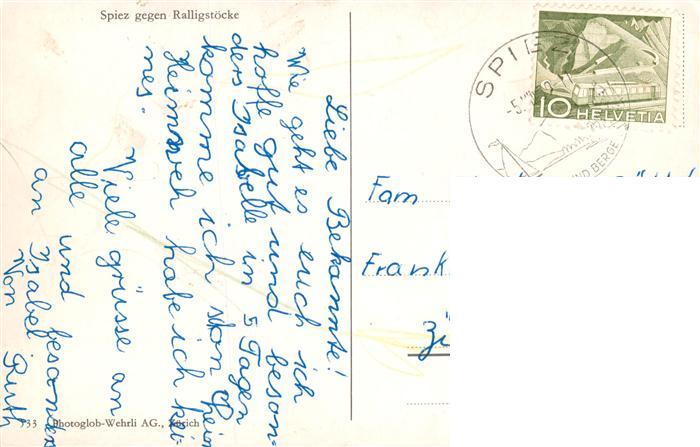 Spiez gegen Ralligstöcke
Liebe Bekannte!
Wie geht es euch ich
hoffe gut und beson-
ders Isabelle in 5 Tagen
komme ich shon heim
Heimweh habe ich kei-
nes.
Viele grüsse an
alle und besonders
an Isabel
Von Ruth
733 Photoglob-Wehrli AG., Zürich
SPIEZ
10 HELVETIA
UND BERGE
Fam
Frank
Zü